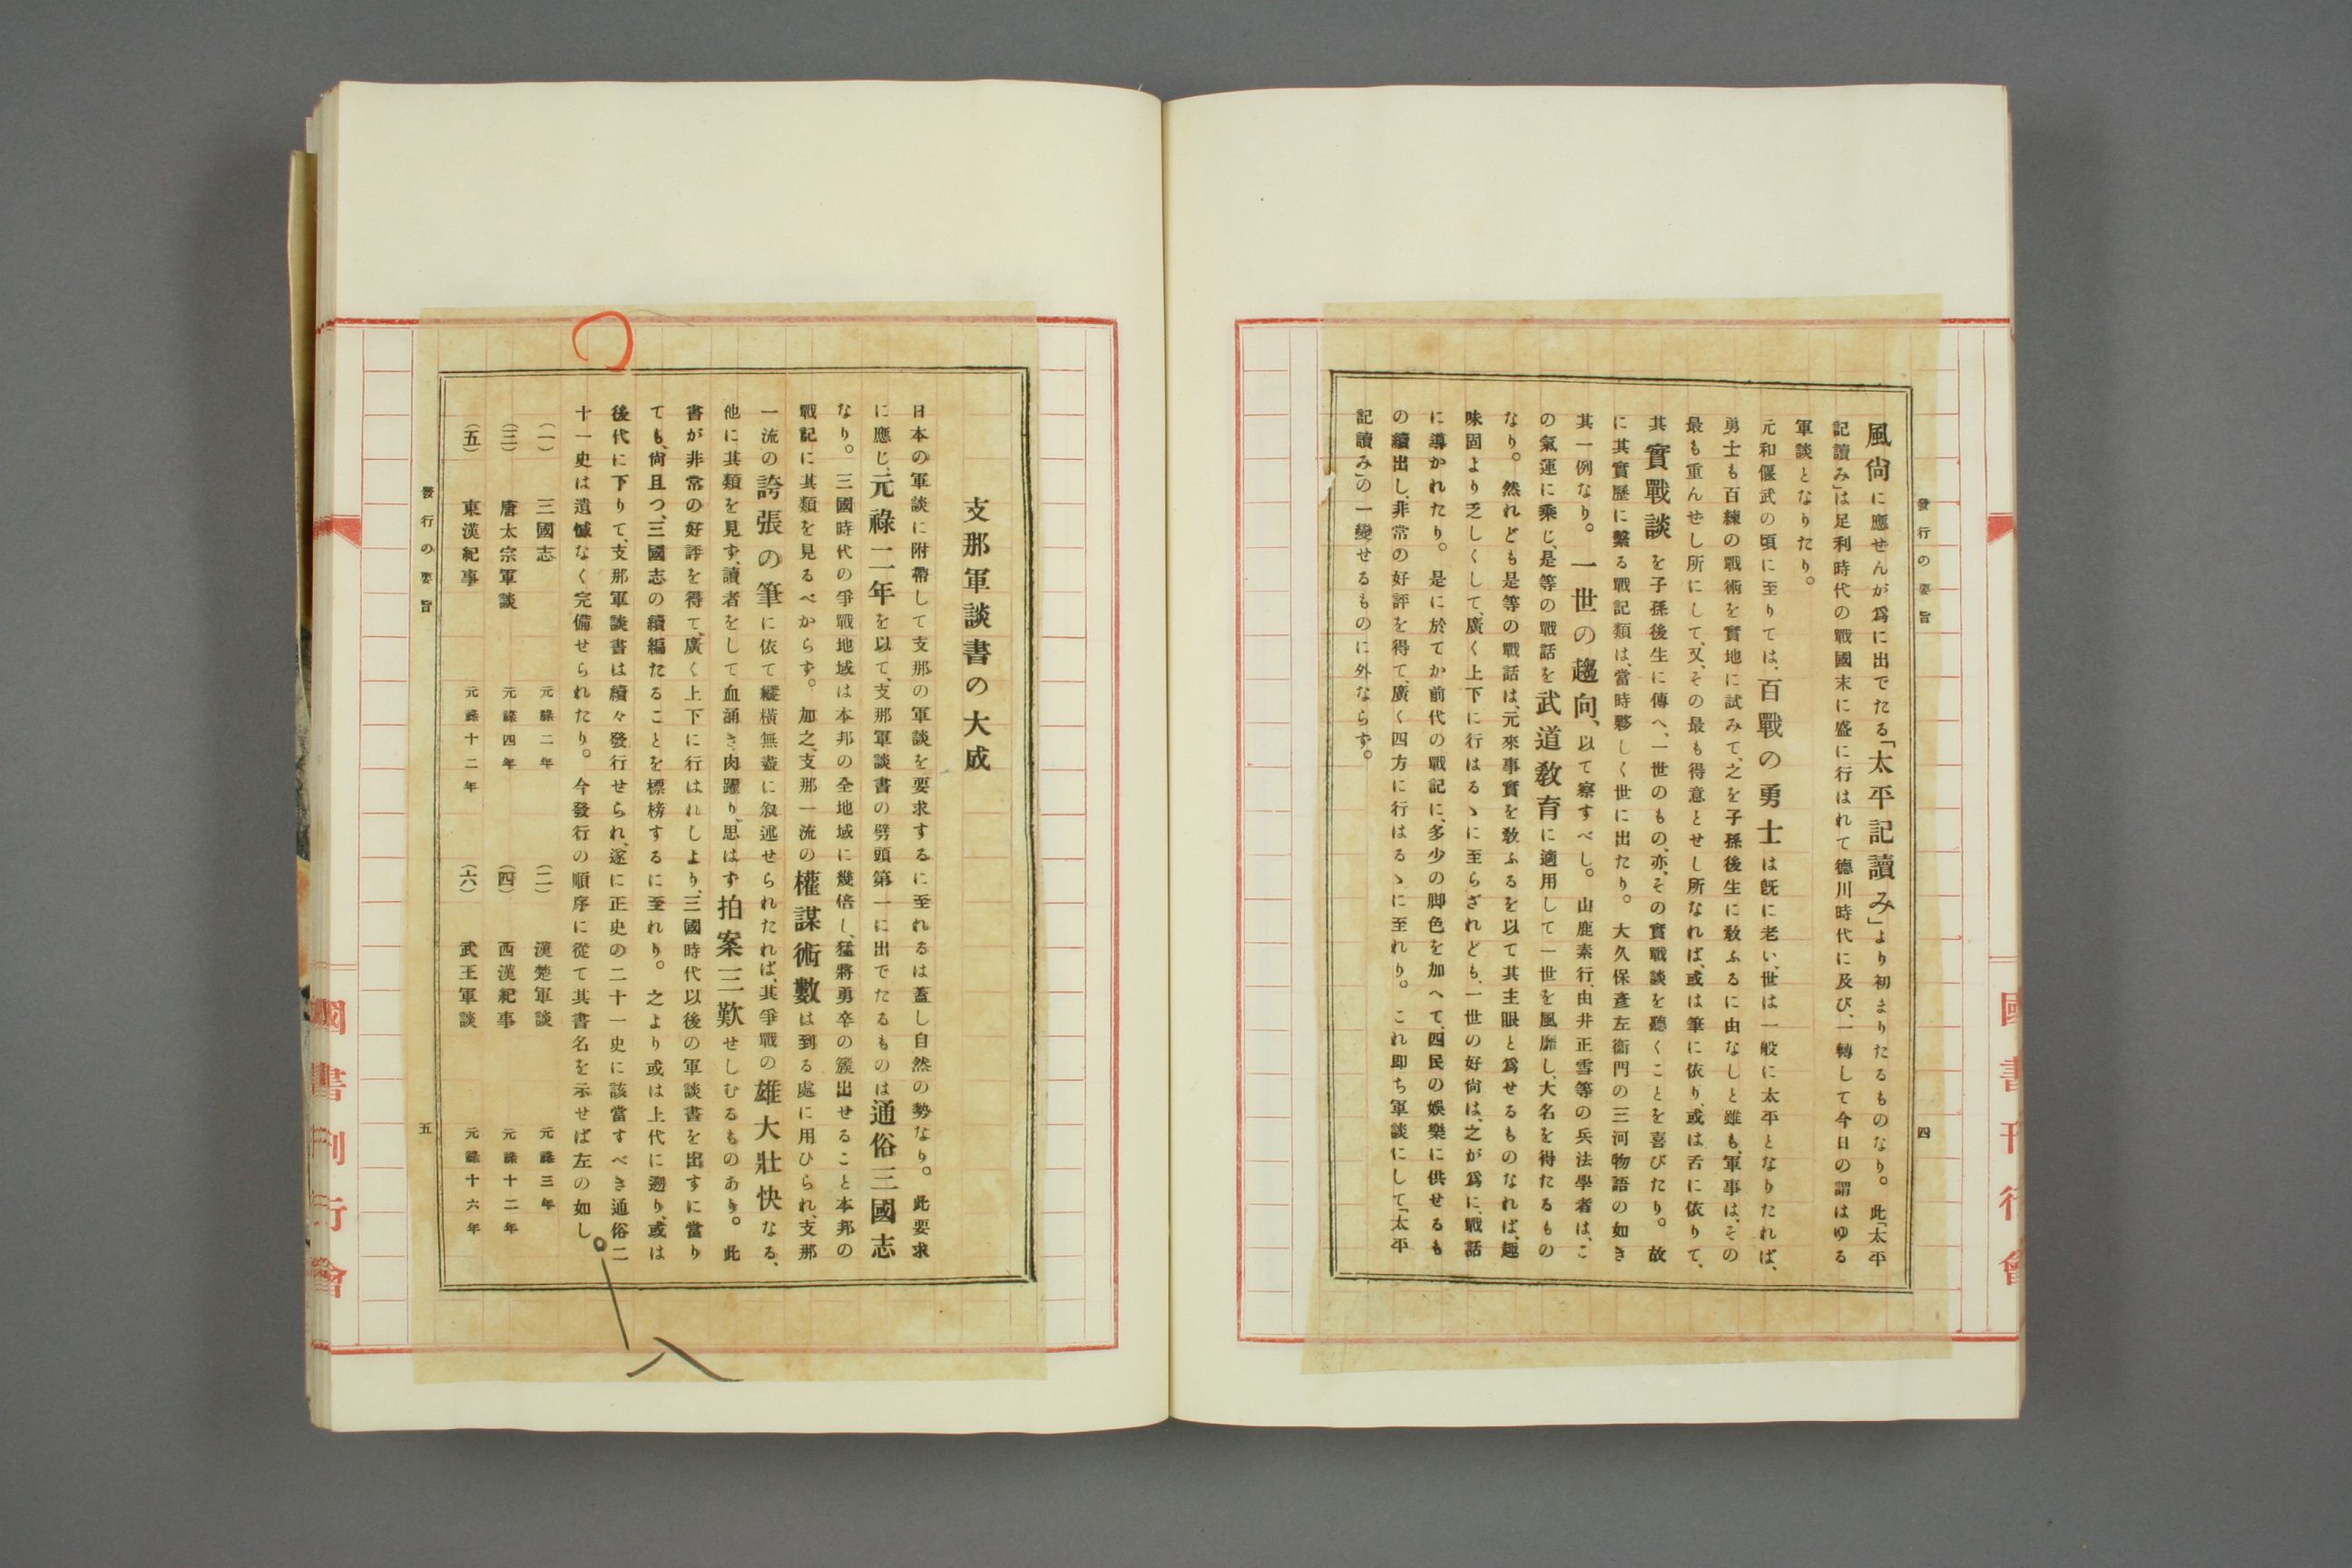 發行の要旨
四
風尙に應せんが爲に出でたる「太平記讀み」より初まりたるものなり。此「太平
記讀み」は足利時代の戰國末に盛に行はれて德川時代に及び、一轉して今日の謂はゆる
軍談となりたり。
元和偃武の頃に至りては、百戰の勇士は旣に老い、世は一般に太平となりたれば、
勇士も百練の戰術を實地に試みて、之を子孫後生に敎ふるに由なしと雖も、軍事は、その
最も重んせし所にして、又、その最も得意とせし所なれば、或は筆に依り、或は舌に依りて、
其實戰談を子孫後生に傳へ、一世のもの、亦、その實戰談を聽くことを喜びたり。故
に其實歷に繫る戰記類は、當時夥しく世に出たり。大久保彥左衞門の三河物語の如き
其一例なり。一世の趨向、以て察すべし。山鹿素行、由井正雪等の兵法學者は、こ
の氣運に乘じ、是等の戰話を武道敎育に適用して一世を風靡し、大名を得たるもの
なり。然れども是等の戰話は、元來事實を敎ふるを以て其主眼と爲せるものなれば、趣
味固より乏しくして、廣く上下に行はるゝに至らざれども、一世の好尙は、之が爲に、戰話
に導かれたり。是に於てか前代の戰記に、多少の脚色を加へて、四民の娛樂に供せるも
の續出し、非常の好評を得て、廣く四方に行はるゝに至れり。これ卽ち軍談にして「太平
記讀み」の一變せるものに外ならず。
國書刊行會
支那軍談書の大成
日本の軍談に附帶して支那の軍談を要求するに至れるは蓋し自然の勢なり。此要求
に應じ、元祿二年を以て、支那軍談書の劈頭第一に出でたるものは通俗三國志
なり。三國時代の爭戰地域は本邦の全地域に幾倍し、猛將勇卒の簇出せること本邦の
戰記に其類を見るべからず。加之、支那一流の權謀術數は到る處に用ひられ、支那
一流の誇張の筆に依て縱橫無盡に叙述せられたれば、其爭戰の雄大壯快なる、
他に其類を見ず、讀者をして血涌き肉躍り、思はず拍案三歎せしむるものあり。此
書が非常の好評を得て、廣く上下に行はれしより、三國時代以後の軍談書を出すに當り
ても、尙且つ、三國志の續編たることを標榜するに至れり。之より或は上代に遡り、或は
後代に下りて、支那軍談書は續々發行せられ、遂に正史の二十一史に該當すべき通俗二
十一史は遺憾なく完備せられたり。今發行の順序に從て其書名を示せば左の如し。
(一) 三國志 元祿二年 (二) 漢楚軍談 元祿三年
(三) 唐太宗軍談 元祿四年 (四) 西漢紀事 元祿十二年
(五) 東漢紀事 元祿十二年 (六) 武王軍談 元祿十六年
發行の要旨
五
八
國書刊行會